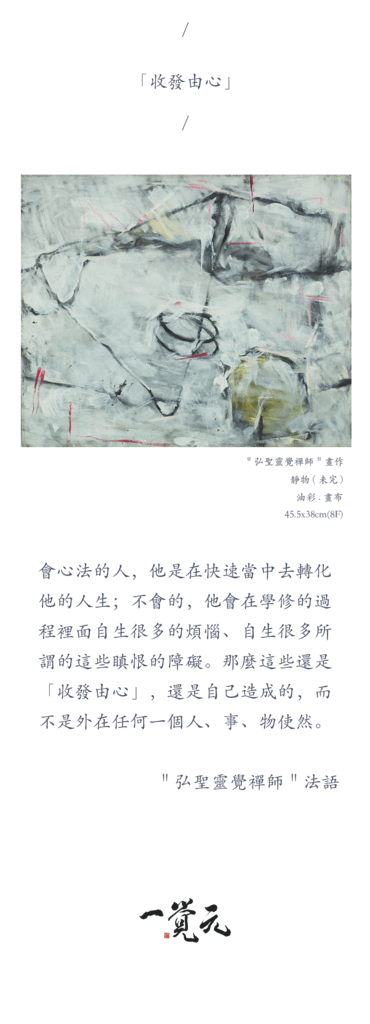 /
「收發由心」
/
"弘聖靈覺禪師"畫作
靜物(未完)
油彩.畫布
45.5x38cm(8F)
會心法的人，他是在快速當中去轉化
他的人生；不會的，他會在學修的過
程裡面自生很多的煩惱、自生很多所
謂的這些瞋恨的障礙。那麼這些還是
「收發由心」，還是自己造成的，而
不是外在任何一個人、事、物使然。
"弘聖靈覺禪師"法語
一覺元